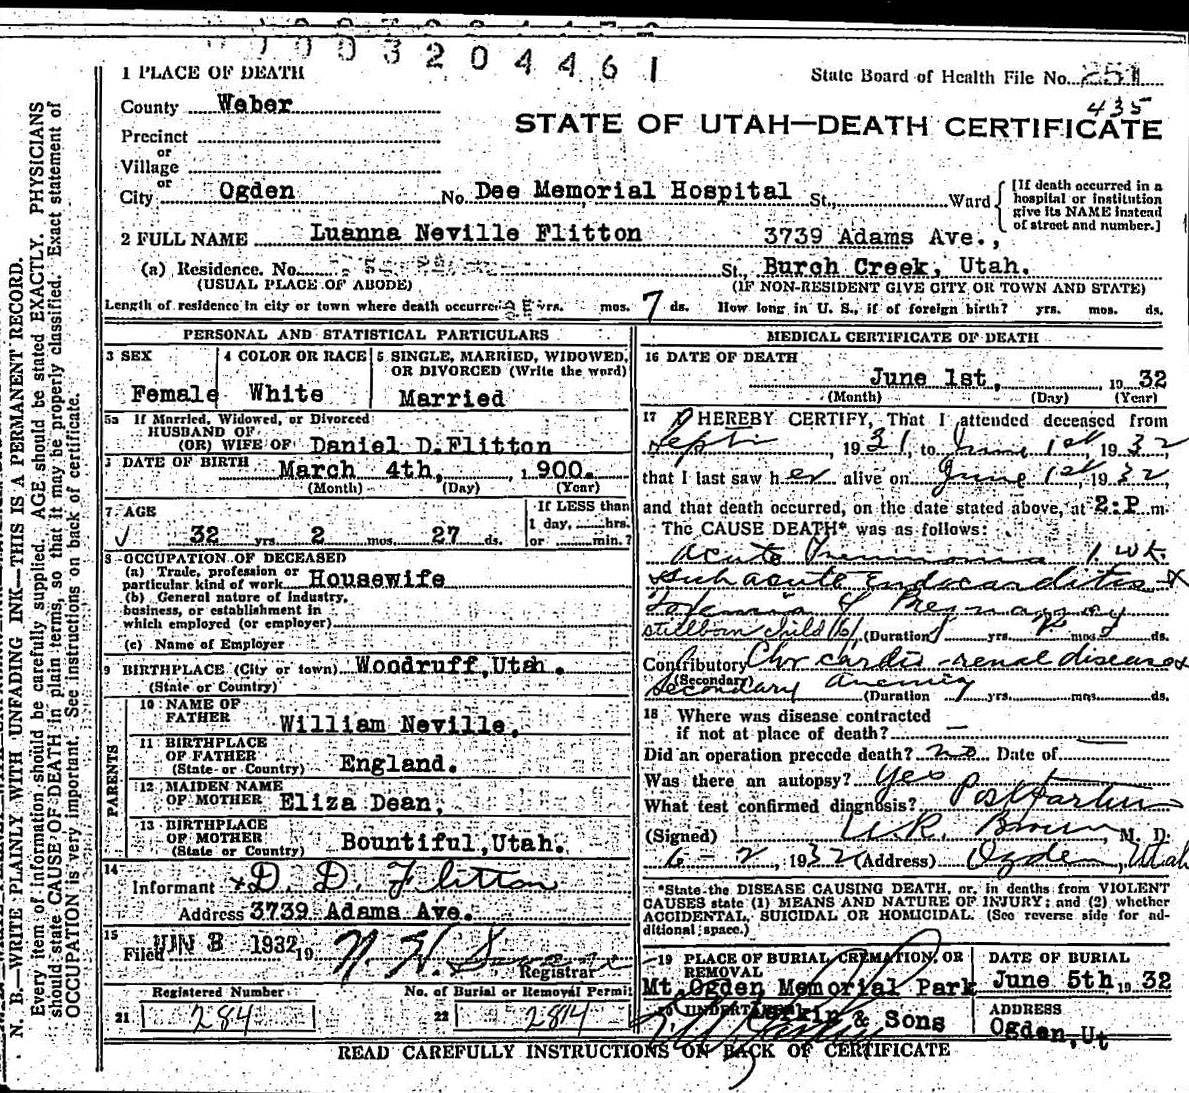 1003204461
1 PLACE OF DEATH
State Board of Health File No. 251
435
County Weber
STATE OF UTAH—DEATH CERTIFICATE
Precinct
or
Village
or
City Ogden No. Dee Memorial Hospital St., Ward
[If death occurred in a hospital or institution give its NAME instead of street and number.]
2 FULL NAME Luanna Neville Flitton 3739 Adams Ave.,
(a) Residence. No. St., Burch Creek, Utah.
(USUAL PLACE OF ABODE) (IF NON-RESIDENT GIVE CITY OR TOWN AND STATE)
Length of residence in city or town where death occurred yrs. mos. 7 ds. How long in U. S., if of foreign birth? yrs. mos. ds.
PERSONAL AND STATISTICAL PARTICULARS
3 SEX
Female
4 COLOR OR RACE
White
5 SINGLE, MARRIED, WIDOWED,
OR DIVORCED (Write the word)
Married
5a If Married, Widowed, or Divorced
HUSBAND OF
(OR) WIFE OF Daniel D. Flitton
DATE OF BIRTH March 4th, 1900.
(Month) (Day) (Year)
7 AGE
32 yrs. 2 mos. 27 ds.
If LESS than
1 day, hrs.
or min.?
8 OCCUPATION OF DECEASED
(a) Trade, profession or
particular kind of work Housewife
(b) General nature of industry,
business, or establishment in
which employed (or employer)
(c) Name of Employer
9 BIRTHPLACE (City or town) Woodruff, Utah.
(State or Country)
PARENTS
10 NAME OF
FATHER William Neville,
11 BIRTHPLACE
OF FATHER
(State or Country) England.
12 MAIDEN NAME
OF MOTHER Eliza Dean,
13 BIRTHPLACE
OF MOTHER
(State or Country) Bountiful, Utah.
14
Informant D. D. Flitton
Address 3739 Adams Ave.
15
Filed JUN 3 1932 19
Registrar
Registered Number
21 284
No. of Burial or Removal Permit
22 284
MEDICAL CERTIFICATE OF DEATH
16 DATE OF DEATH
June 1st, 19 32
(Month) (Day) (Year)
17 I HEREBY CERTIFY, That I attended deceased from
Sept 1931, to June 1st, 1932,
that I last saw her alive on June 1st, 1932,
and that death occurred, on the date stated above, at 2:P m.
The CAUSE DEATH* was as follows:
Acute Pneumonia 1 wk.
Subacute Endocarditis &
Toxemia of Pregnancy
Stillborn child (Duration) yrs. mos. ds.
Contributory Chr cardio-renal disease
(Secondary)
Secondary Anemia (Duration yrs. mos. ds.
18 Where was disease contracted
if not at place of death? —
Did an operation precede death? no Date of
Was there an autopsy? yes
What test confirmed diagnosis? Postmortem
(Signed) W.R. Brown, M. D.
6-2, 1932 (Address) Ogden, Utah
*State the DISEASE CAUSING DEATH, or, in deaths from VIOLENT
CAUSES state (1) MEANS AND NATURE OF INJURY; and (2) whether
ACCIDENTAL, SUICIDAL OR HOMICIDAL. (See reverse side for ad-
ditional space.)
19 PLACE OF BURIAL, CREMATION, OR
REMOVAL
Mt. Ogden Memorial Park
DATE OF BURIAL
June 5th, 19 32
20 UNDERTAKER Larkin & Sons
ADDRESS
Ogden, Ut
READ CAREFULLY INSTRUCTIONS ON BACK OF CERTIFICATE
N. B.—WRITE PLAINLY WITH UNFADING INK—THIS IS A PERMANENT RECORD.
Every item of information should be carefully supplied. AGE should be stated EXACTLY. PHYSICIANS
should state CAUSE OF DEATH in plain terms, so that it may be properly classified. Exact statement of
OCCUPATION is very important. See instructions on back of certificate.